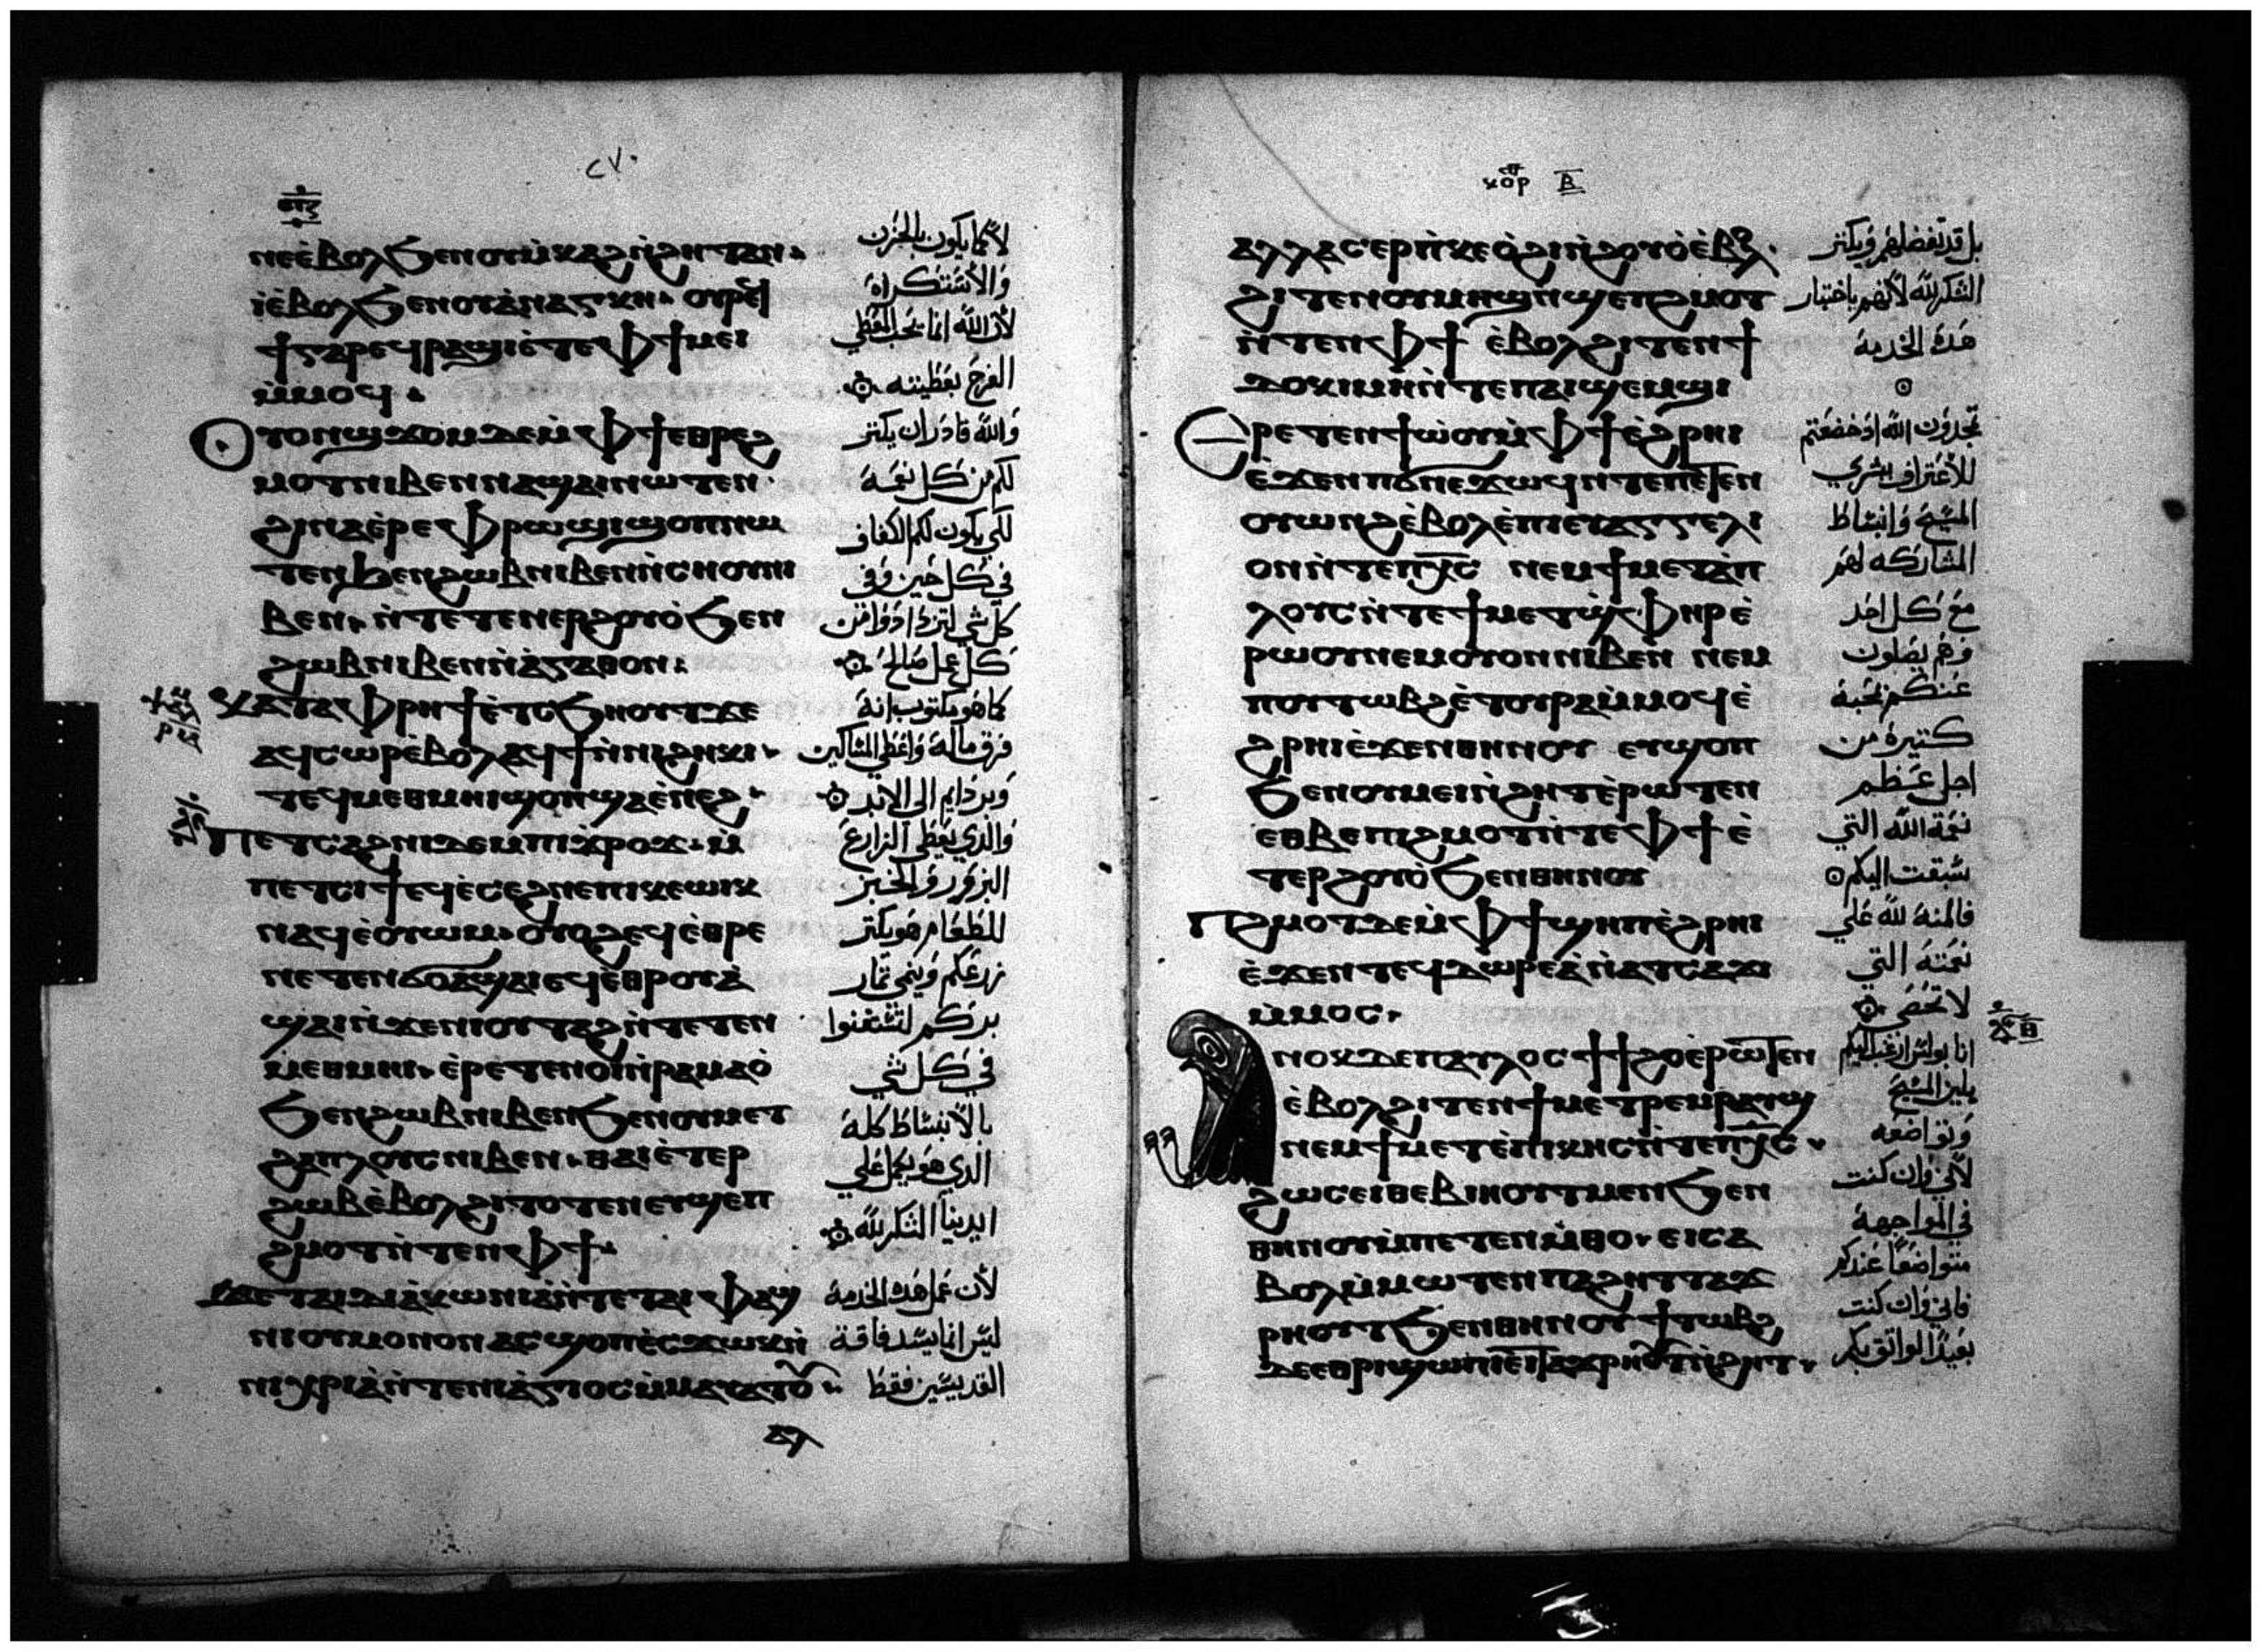 ⲛⲉⲉ̀ⲃⲟⲗϧⲉⲛⲟⲩⲙ̀ⲕⲁϩⲛ̀ϩⲏⲧⲁⲛ
ⲓⲉ̀ⲃⲟⲗϧⲉⲛⲟⲩⲁ̀ⲛⲁⲅⲕⲏ
ϯⲅⲁⲣⲉϥⲣⲁϣⲓⲉ̀ⲧⲉⲫϯⲙⲉⲓ
ⲙ̀ⲙⲟϥ
ⲟⲩⲟⲛϣϫⲟⲙⲇⲉⲙ̀ⲫϯⲉⲑⲣⲉϩ
ⲙⲟⲧⲛⲓⲃⲉⲛⲛⲁϣⲁⲓⲛⲱⲧⲉⲛ
ϩⲓⲛⲁⲉ̀ⲣⲉⲫⲣⲱϣⲓϣⲟⲡⲛⲱ
ⲧⲉⲛϧⲉⲛϩⲱⲃⲛⲓⲃⲉⲛⲛ̀ⲥⲏⲟⲩⲛⲓ
ⲃⲉⲛ ⲛ̀ⲧⲉⲧⲉⲛⲉⲣϩⲟⲩⲟ̀ϧⲉⲛ
ϩⲱⲃⲛⲓⲃⲉⲛⲛ̀ⲁ̀ⲅⲁⲑⲟⲛ
ⲕⲁⲧⲁⲫⲣⲏϯⲉ̀ⲧⲥϧⲏⲟⲩⲧϫⲉ
ⲁϥⲥⲱⲣⲉ̀ⲃⲟⲗⲁϥϯⲛ̀ⲛⲓϩⲏⲕⲓ
ⲧⲉϥⲙⲉⲑⲙⲏⲓϣⲟⲡϣⲁⲉ̀ⲛⲉϩ
ⲡⲉⲧⲥⲁϩⲛⲓⲇⲉⲙⲡⲓϫⲣⲟϫ ⲙ̀
ⲡⲉⲧⲥⲓϯⲉϥⲉ̀ⲥⲉϩⲛⲉⲡⲓⲕⲉⲱⲓⲕ
ⲛⲁϥⲉ̀ⲟⲩⲱⲙ ⲟⲩⲟϩⲉϥⲉ̀ⲑⲣⲉ
ⲛⲉⲧⲉⲛϭⲟⲁϣⲁⲓⲉϥⲉⲑⲣⲟⲩⲁ̀
ϣⲁⲓⲛ̀ϫⲉⲛⲓⲟⲩⲧⲁϩⲛ̀ⲧⲉⲧⲉⲛ
ⲙⲉⲑⲙⲏⲓ ⲉ̀ⲣⲉⲧⲉⲛⲟⲓⲛ̀ⲣⲁⲙⲁⲟ̀
ϧⲉⲛϩⲱⲃⲛⲓⲃⲉⲛϧⲉⲛⲟⲩⲙⲉⲧ
ϩⲁⲡⲗⲟⲩⲥⲛⲓⲃⲉⲛ ⲑⲁⲓⲉ̀ⲧⲉⲣ
ϩⲱⲃⲉ̀ⲃⲟⲗϩⲓⲧⲟⲧⲉⲛⲉⲩϣⲉⲡ
ϩⲙⲟⲧⲛ̀ⲧⲉⲛⲫϯ
ϫⲉⲧⲁⲓⲇⲓⲁ̀ⲕⲱⲛⲓⲁ̀ⲛ̀ⲧⲉⲧⲁⲓⲫⲁϣ
ⲛⲓⲟⲩⲙⲟⲛⲟⲛⲁⲥϣⲟⲡⲉ̀ⲥϫⲱⲕⲛ̀
ⲛⲓⲭⲣⲓⲁ̀ⲛ̀ⲧⲉⲛⲓⲁ̀ⲅⲓⲟⲥⲙ̀ⲙⲁⲩⲁⲧⲟ
ⲁⲗ
٢٧٠
لا كما يكون بالحزن
والاستكراه
لان الله انما يحب المعطي
الفرح بعطيته
والله قادر ان يكثر
لكم من كل نعمه
لكي يكون لكم الكفاف
في كل حين وفي
كل شي لتزدادوا من
كل عمل صالح
كما هو مكتوب انه
فرق ماله واعطي المساكين
وبره دايم الي الابد
والذي يعطي الزارع
البزور والخبز
للطعام هو يكثر
زرعكم وينمي ثمار
بركم لتستغنوا
في كل شي
بالانبساط كله
الذي هو يكمل علي
ايدينا الشكر لله
لان عمل هذه الخدمه
ليس انما يسد فاقة
القديسين فقط
ⲁⲗⲗⲁⲥⲉⲣⲡ̀ⲕⲉⲟ̀ϩⲓⲛ̀ϩⲟⲩⲟ̀ⲉ̀ⲃⲟⲗ
ϩⲓⲧⲉⲛⲟⲩⲙⲏϣⲛ̀ϣⲉⲡϩⲙⲟⲧ
ⲛ̀ⲧⲉⲛⲫϯ ⲉ̀ⲃⲟⲗϩⲓⲧⲉⲛϯ
ⲇⲟⲕⲓⲙⲏⲛ̀ⲧⲉⲡⲁⲓϣⲉⲙϣⲓ
ⲉⲣⲉⲧⲉⲛϯⲱ̀ⲟⲩⲙ̀ⲫϯⲉ̀ϩⲣⲏⲓ
ⲉ̀ϫⲉⲛⲡϭⲛⲉϫⲱϥⲛ̀ⲧⲉⲡⲉⲧⲉⲛ
ⲟⲩⲱⲛϩⲉ̀ⲃⲟⲗⲉ̀ⲡⲓⲉⲩⲁⲅⲅⲉⲗⲓ
ⲟⲛⲛ̀ⲧⲉⲡⲭⲥ ⲛⲉⲙϯⲙⲉⲧϩⲁ̀ⲡ
ⲗⲟⲩⲥⲛ̀ⲧⲉϯⲙⲉⲧϣ̀ⲫⲏⲣⲉ̀
ⲣⲱⲟⲩⲛⲉⲙⲟⲩⲟⲛⲛⲓⲃⲉⲛ ⲛⲉⲙ
ⲡⲟⲩⲧⲱⲃϩⲉ̀ⲧⲟⲩⲣⲁⲙ̀ⲙⲟϥⲉ̀
ϩⲣⲏⲓⲉ̀ϫⲉⲛⲑⲏⲛⲟⲩ ⲉⲩϣⲟⲡ
ϧⲉⲛⲟⲩⲙⲉⲓⲛ̀ϩⲏⲧⲉ̀ⲣⲱⲧⲉⲛ
ⲉⲑⲃⲉⲡϩⲙⲟⲧⲛ̀ⲧⲉⲫϯⲉ̀
ⲧⲉⲣϩⲟⲩⲟ̀ϧⲉⲛⲑⲏⲛⲟⲩ
ⲡϩⲙⲟⲧⲇⲉⲙ̀ⲫϯϣⲏⲡⲉ̀ϩⲣⲏⲓ
ⲉ̀ϫⲉⲛⲧⲉϥⲇⲱⲣⲉⲁ̀ⲛ̀ⲁⲧⲥⲁϫⲓ
ⲙ̀ⲙⲟⲥ
ⲁⲛⲟⲕⲇⲉⲡⲁⲩⲗⲟⲥϯϯϩⲟⲉ̀ⲣⲱⲧⲉⲛ
ⲉ̀ⲃⲟⲗϩⲓⲧⲉⲛϯⲙⲉⲧⲣⲉⲙⲣⲁⲩϣ
ⲛⲉⲙϯⲙⲉⲧⲉ̀ⲡⲓⲕⲏⲥⲛ̀ⲧⲉⲡⲭⲥ
ϩⲱⲥⲉⲓⲑⲉⲃⲓⲏⲟⲩⲧⲙⲉⲛϧⲉⲛ
ⲑⲏⲛⲟⲩⲙ̀ⲡⲉⲧⲉⲛⲙ̀ⲑⲟ ⲉⲓⲥⲁ
ⲃⲟⲗⲙ̀ⲙⲱⲧⲉⲛⲡⲁϩⲏⲧⲧⲁϫ
ⲣⲏⲟⲩⲧϧⲉⲛⲑⲏⲛⲟⲩϯⲧⲱⲃϩ
بل قد تفضلهم ويكثر
الشكر لله لانهم باختبار
هذه الخدمه
تمجدون الله اذ خضعتم
للاعتراف ببشري
المسيح وانبساط
المشاركه لهم
مع كل احد
وهم يصلون
عنكم بمحبه
كثيره من
اجل عظم
نعمة الله التي
سبقت اليكم
فالمنه لله علي
نعمته التي
لا تحصي
انا بولس ارغب اليكم
بلين المسيح
وتواضعه
لاني وان كنت
في المواجهه
متواضعا عندكم
فاني وان كنت
بعيدا لواثق بكم